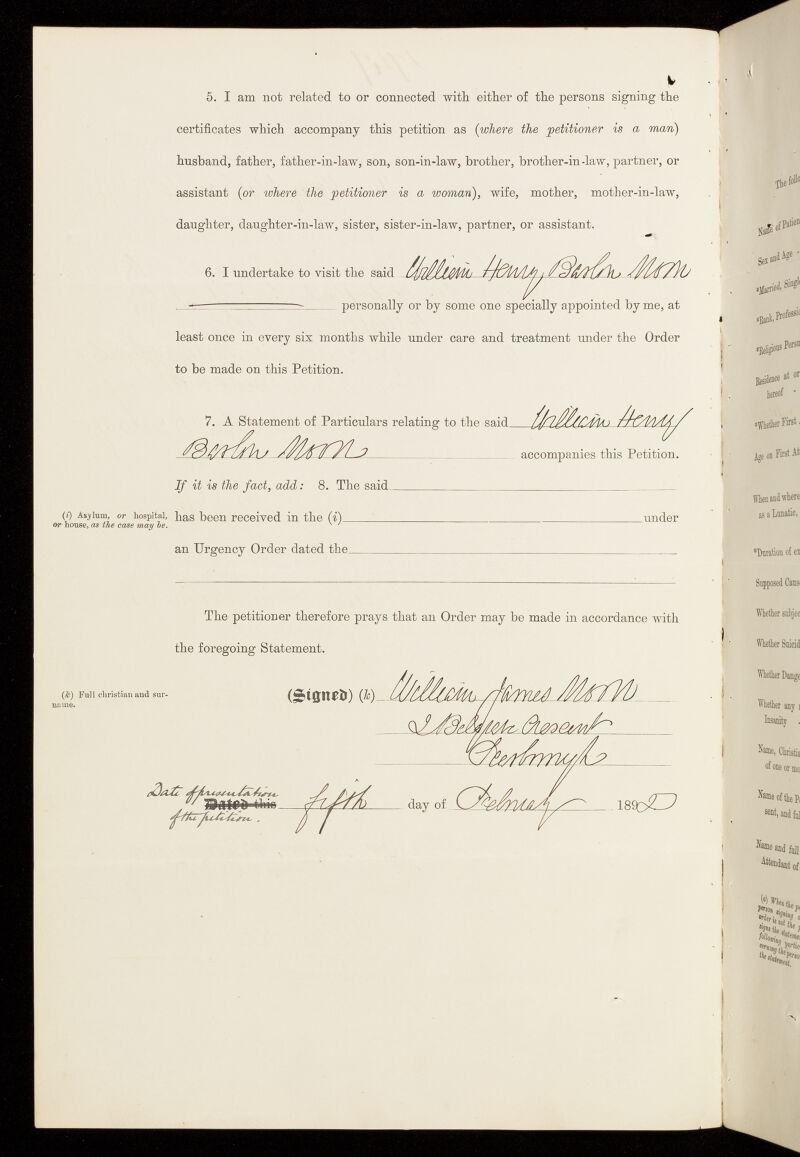 5. I am not related to or connected with either of the persons signing the
certificates which accompany this petition as (where the petitioner is a man)
husband, father, father-in-law, son, son-in-law, brother, brother-in-law, partner, or
assistant (or where the petitioner is a woman), wife, mother, mother-in-law,
daughter, daughter-in-law, sister, sister-in-law, partner, or assistant.
6. I undertake to visit the said William Henry Barlow Morn
personally or by some one specially appointed by me, at
least once in every six months while under care and treatment under the Order
to be made on this Petition.
7. A Statement of Particulars relating to the said William Henry
Barlow Morn accompanies this Petition.
If it is the fact, add: 8. The said
(i) Asylum, or hospital,
or house, as the case may be.
has been received in the (i) under
an Urgency Order dated the
The petitioner therefore prays that an Order may be made in accordance with
the foregoing Statement.
(k) Full christian and sur-
name.
(Signed) (k) William James Morn
2 Crescent
Date of presentation
Dated this fifth day of February 1892
of the petition.
The
Name of
Sex and Age
*Married,
*Rank,
*Religious
Residence at or
hereof
*Whether First
Age on First
When and where
as a Lunatic,
*Duration of
Supposed
Whether
Whether
Whether
Whether any
Insanity
Name,
of one or
Name of the
sent, and
Name and full
Attendant of
(a) When the
person signing
order is not the
signs the
following
the statement.